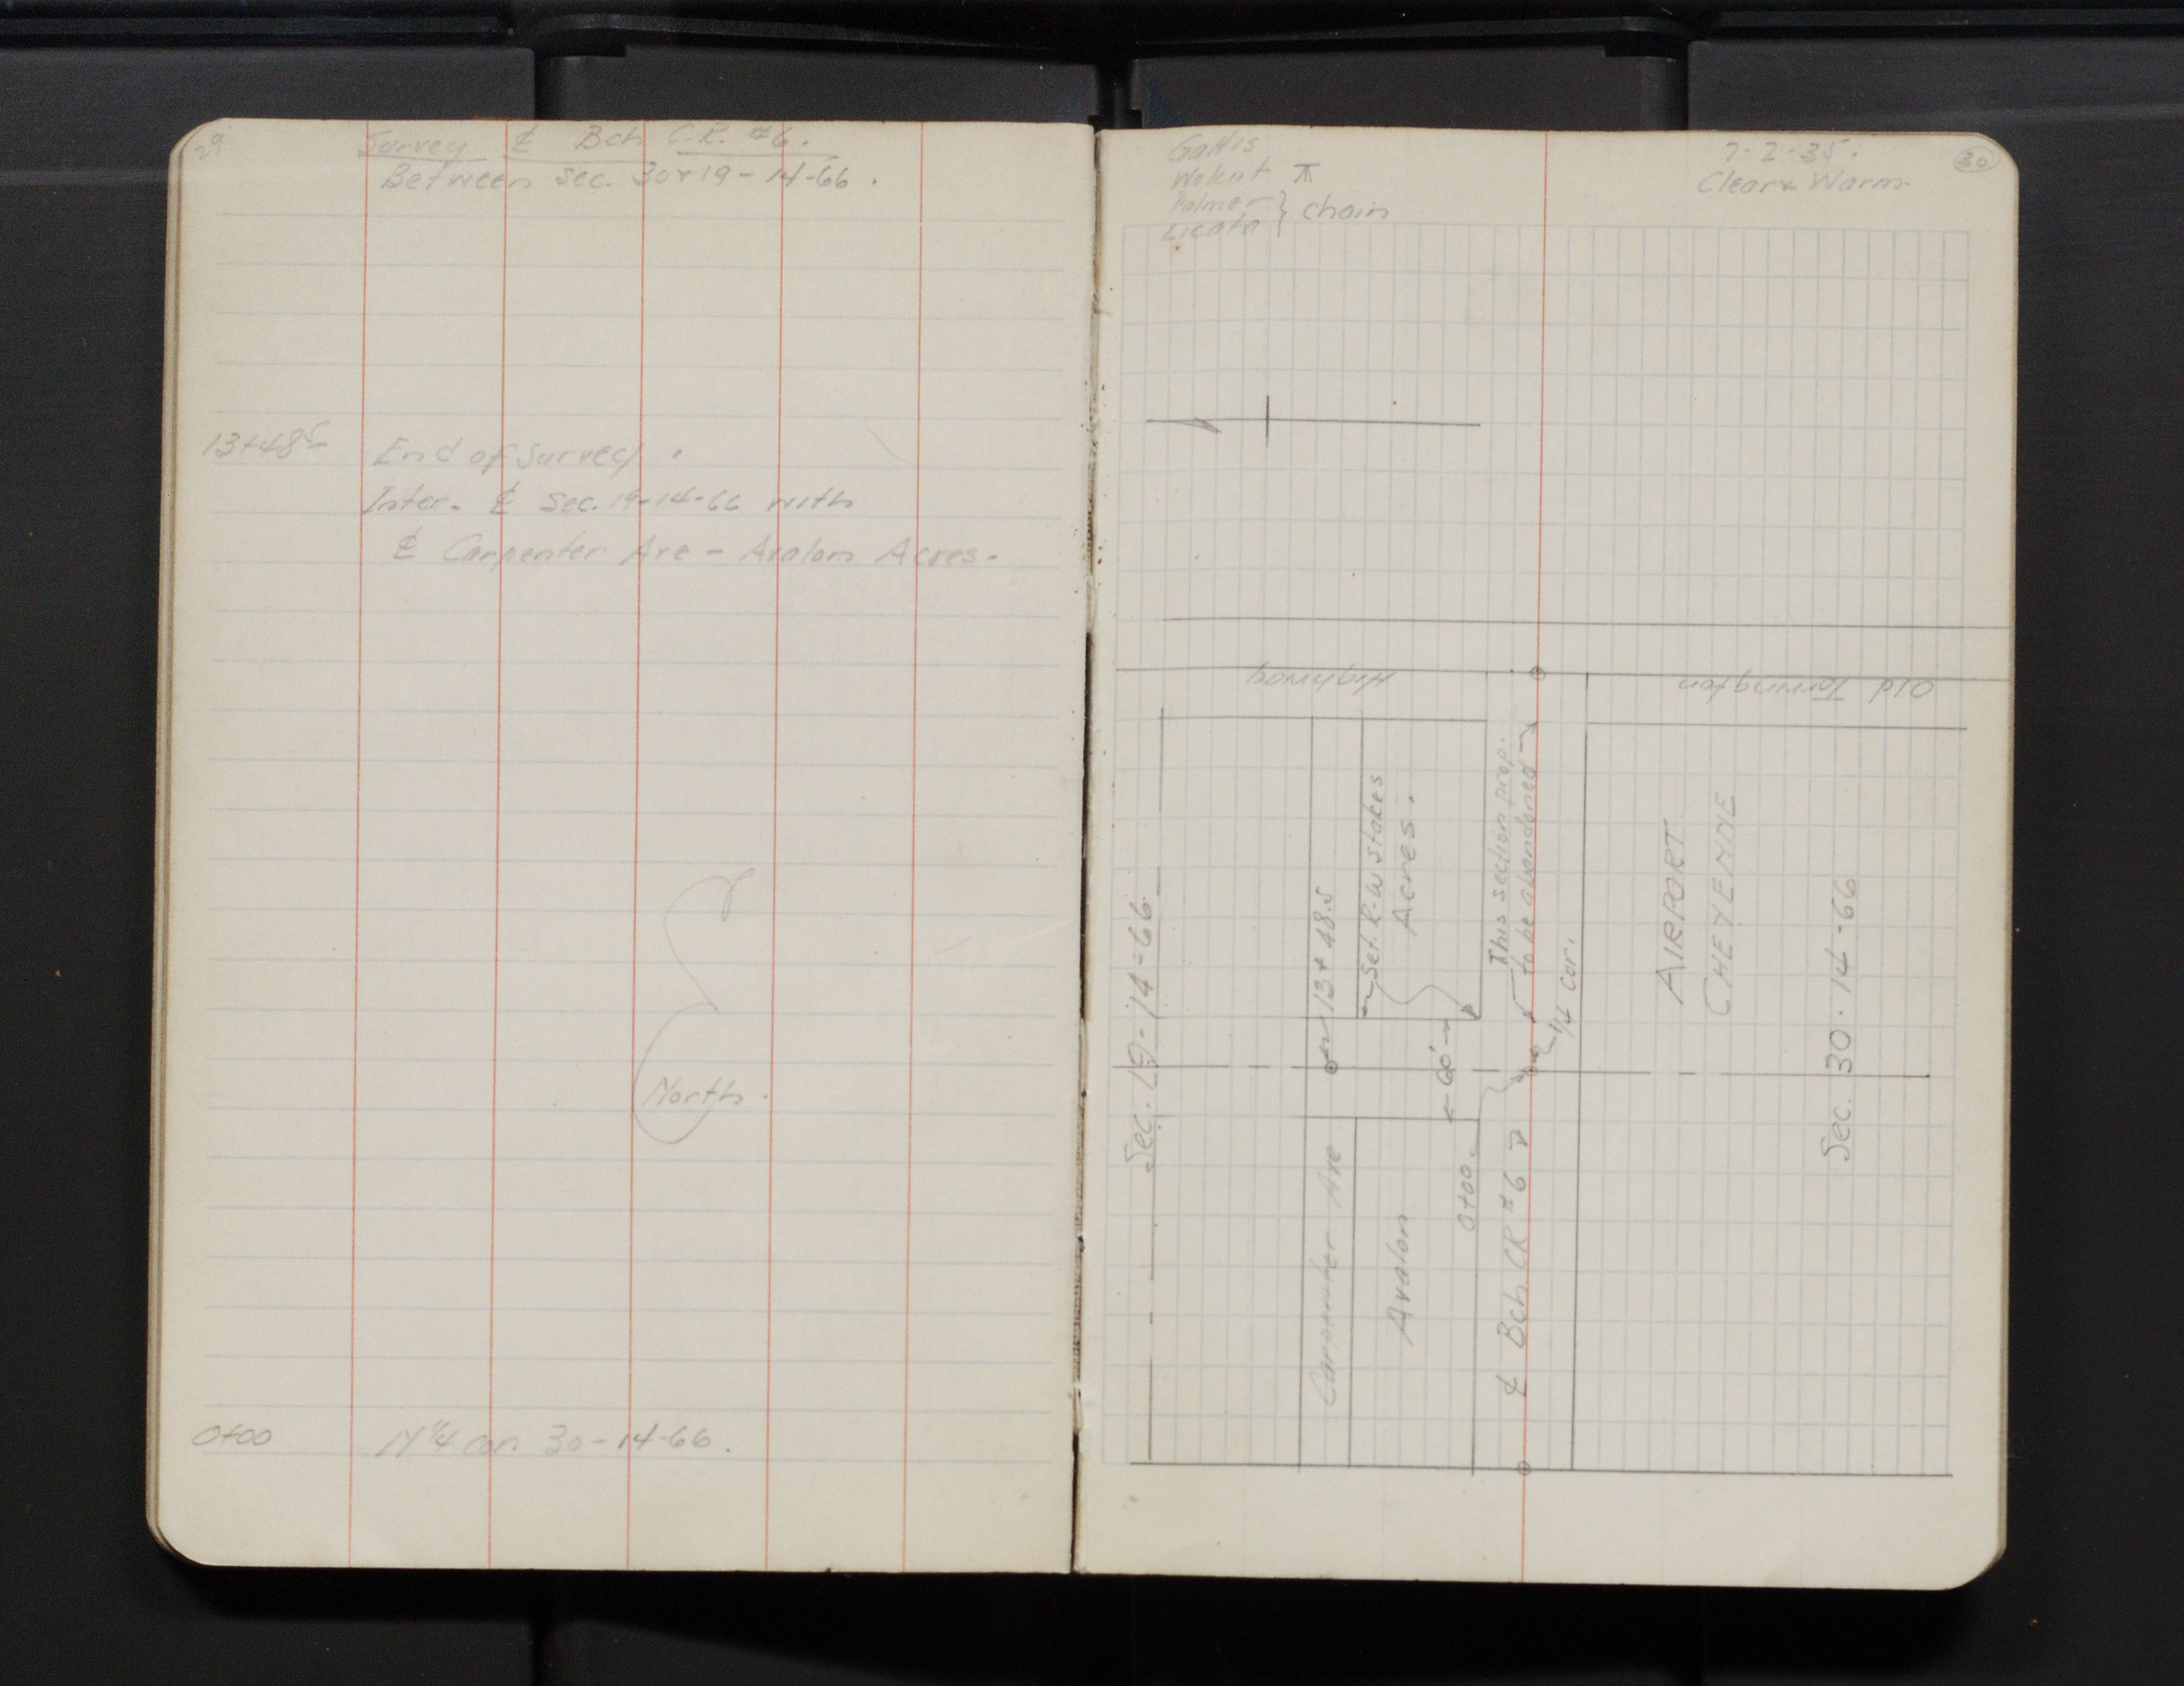 29
Survey ℄ Bch C.R. #6.
Between Sec. 30 & 19-14-66.
13+48⁵ End of Survey.
Inter. ℄ Sec. 19-14-66 with
℄ Carpenter Ave - Avalon Acres-
North.
0+00 N ¼ cor 30-14-66.
Gattis
Walcut ⊼
Palmer } chain
Licata
7-2-35.
Clear & Warm
30
Highway
Old Torrington
Sec. 19-14-66.
13+48.5
Set R-W Stakes
Carpenter Ave
Avalon Acres.
60'
0+00
This section prop.
to be abandoned
¼ cor.
℄ Bch CR #6
AIRPORT
CHEYENNE
Sec. 30-14-66